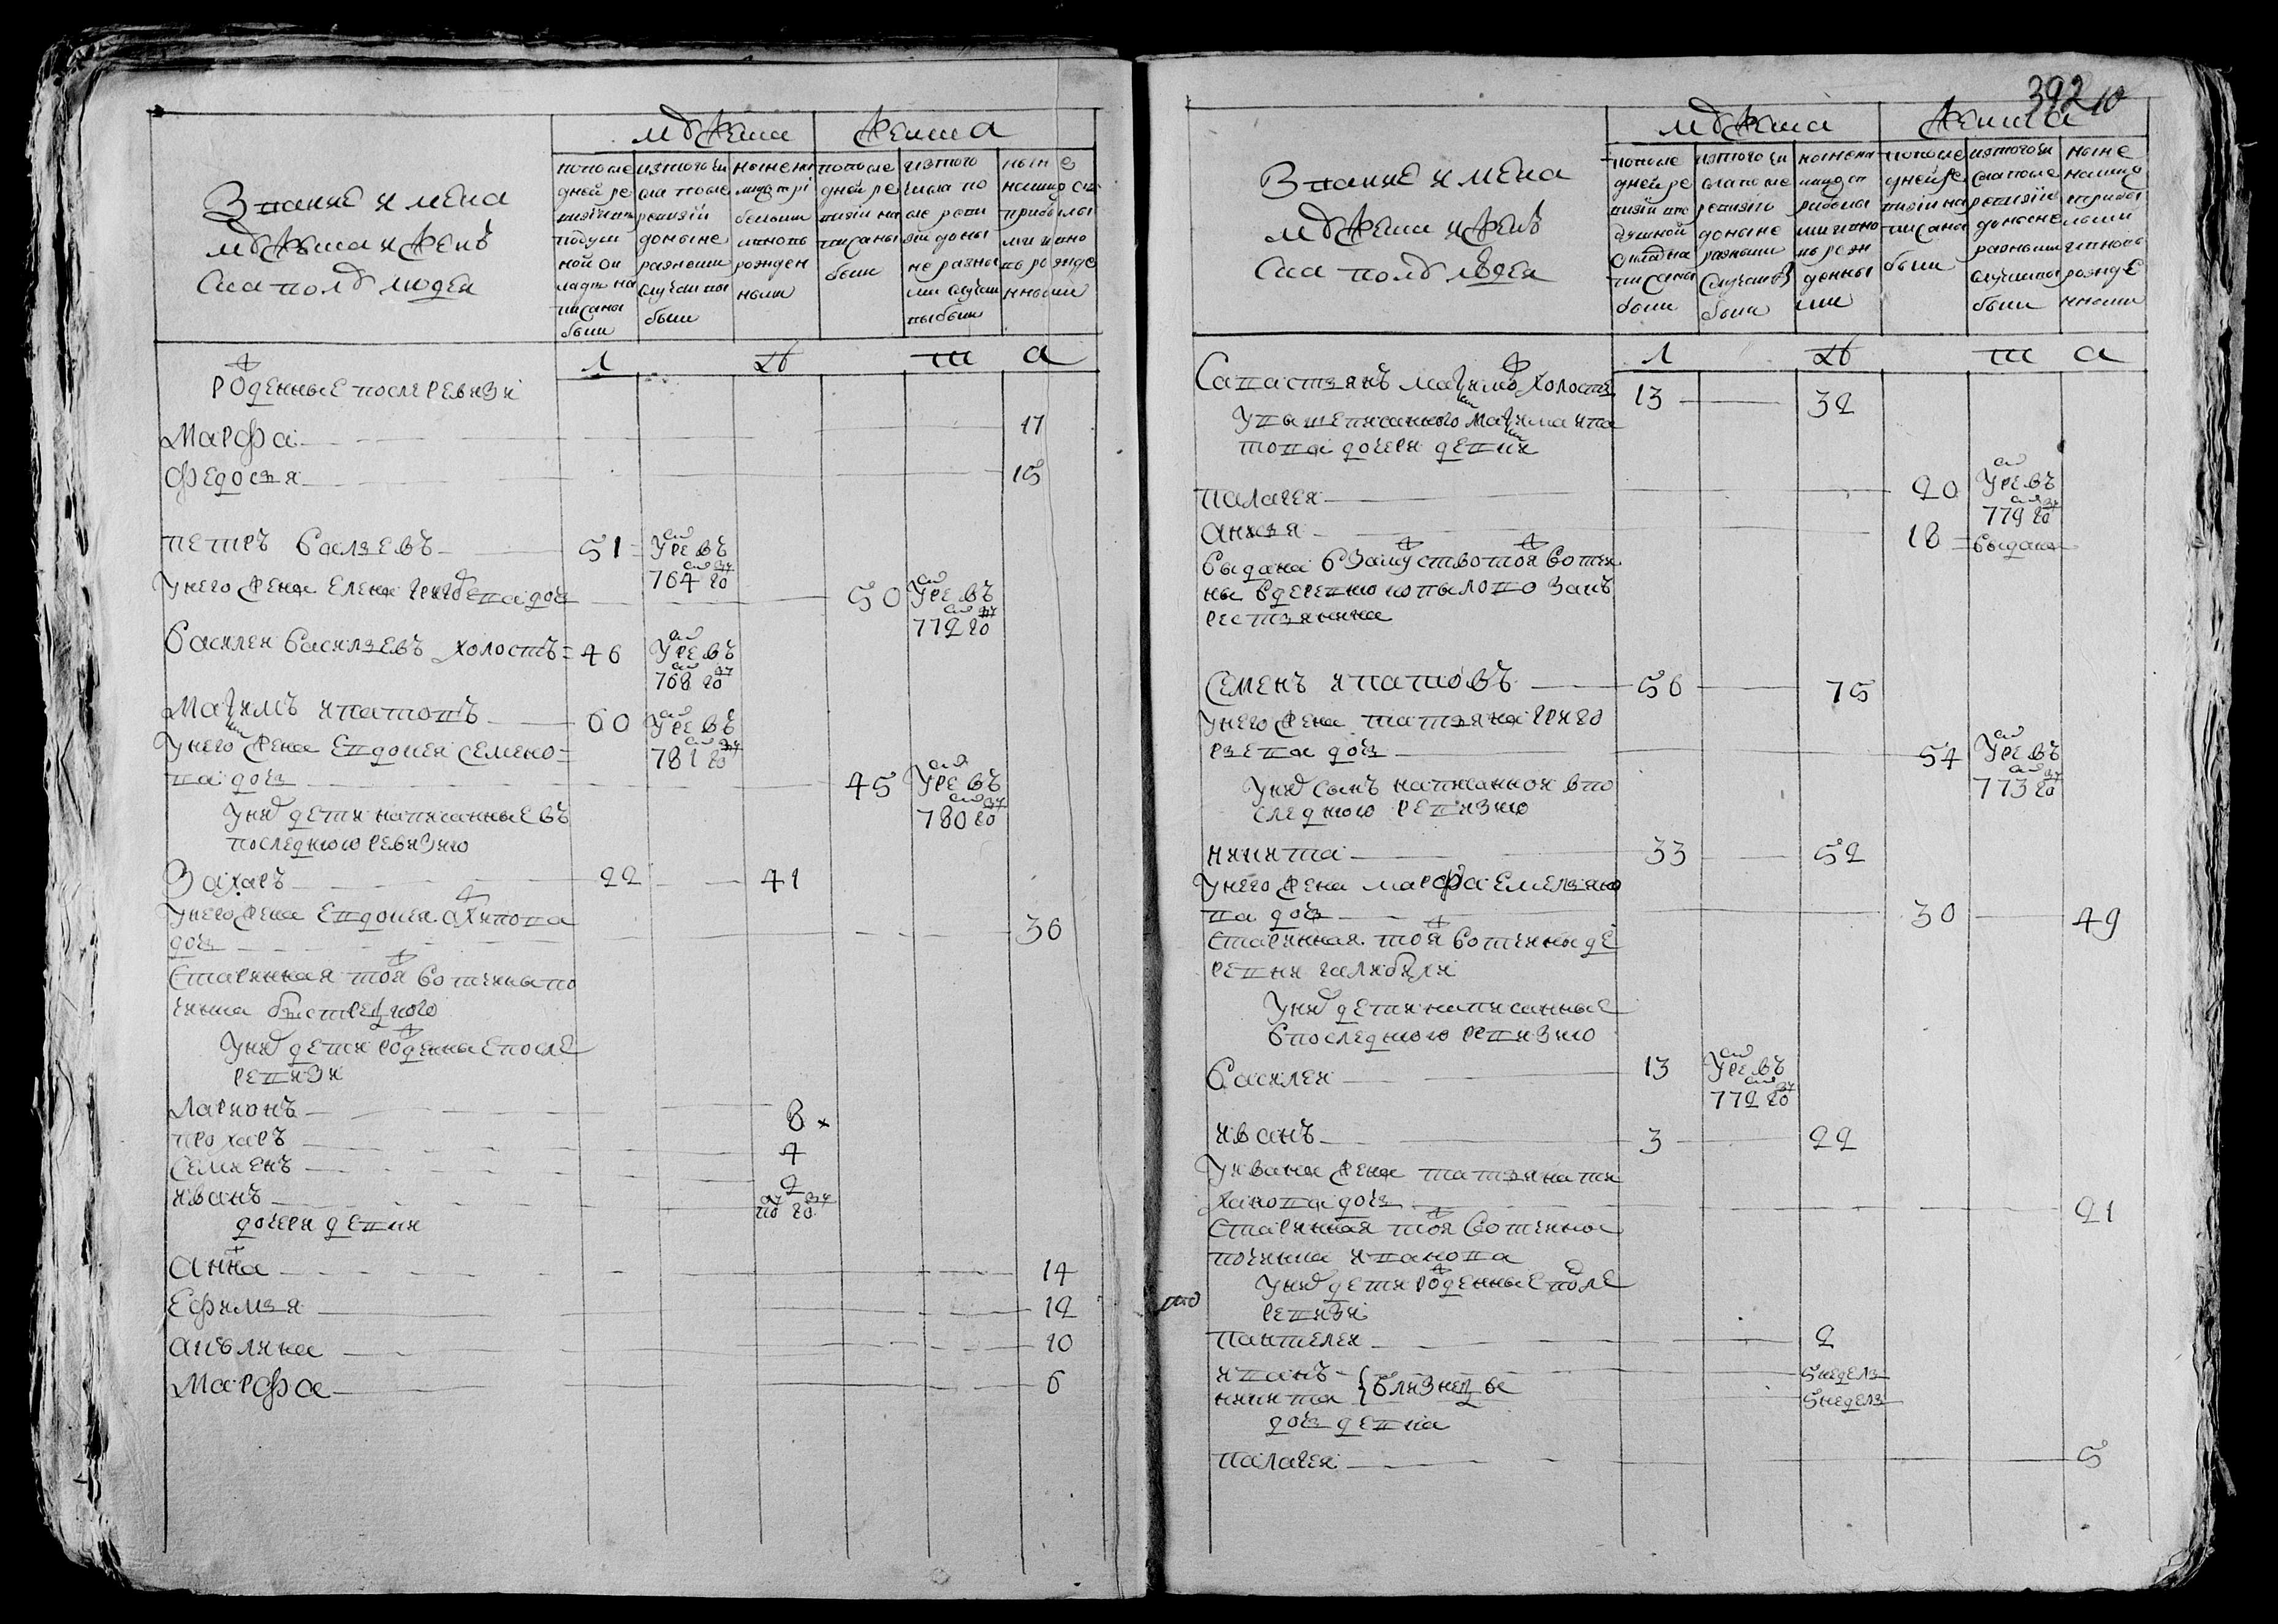 мужеска
женска
Звание и мена
мужеска и женъ
ска полу людей
по после
дней ре
визии въ
подуш
ной ок
ладъ на
писаны
были
изтого чи
сла после
ревизии
до ныне
разными
случаи вы
были
ныне на
лицо при
былыми
и вновь
рожден
ными
по после
дней ре
визии на
писаны
были
изтого
числа по
сле реви
зии до ны
не разны
ми случаи
выбыли
ныне
налицо съ
прибылы
ми и вно
вь рожде
нными
Л Ѣ т а
роденные после ревизи
Марфа 17
Федосья 15
Петръ Васильевъ 51 умре въ 764 году
у него жена Елена Григорьева дочь 50 умре въ 772 году
Василеи Васильевъ холостъ 46 умре въ 768 году
Максимъ Ипатовъ 60 умре въ 781 году
у него жена Евдокея Семено
ва дочь 45 умре въ 780 году
у них дети написанные въ
последнюю ревизию
Захаръ 22 41
у него жена Евдокея Архипова
дочь 36
старинная тоя вотчины по
чинка Быстрецкого
у них дети роденные после
ревизи
Ларионъ 8
Прохаръ 4
Семиенъ 2
Иванъ полгода
дочери девки
Анна 14
Ефимья 12
Акулина 10
Марфа 6
392 10
мужеска
женска
Звание и мена
мужеска и женъ
ска полу людей
по после
дней ре
визии въ
душной
оклад на
писаны
были
изтого чи
сла после
ревизии
до ныне
разными
случаи вы
были
ныне на
лицо съ п
рибылы
ми и вно
вь рож
денны
ми
по после
дней ре
визии на
писаны
были
изтого чи
сла после
ревизии
до ныне
разными
случаи вы
были
ныне
налицо
с прибы
лыми
и вновь
рожде
нными
Л Ѣ т а
Савастьянъ Максимов холостъ 13 32
у вышеписанного Максима Ипа
това дочери девки
Палагея 20 умре въ 779 году
Анисья 18 выдана
выдана в замужство тоя вотчи
ны в деревню Копылово за къ
рестьянина
Семенъ Ипатовъ 56 75
у него жена Татьяна Григо
рьева дочь 54 умре въ 773 году
у них сынъ написанной в по
следнюю ревизию
Никита 33 52
у него жена Марфа Емельяно
ва дочь 30 49
старинная тоя вотчины де
ревни
у них дети написанные
в последнюю ревизию
Василеи 13 умре въ 772 году
Иванъ 3 22
у Ивана жена Татьяна Ти
ханова дочь 21
старинная тоя вотчины
починка Иванова
у них дети роденные после
ревизи
Пантелеи 2
Иванъ 5 недель
Никита близнецы 5 недель
дочь девка
Палагея 5